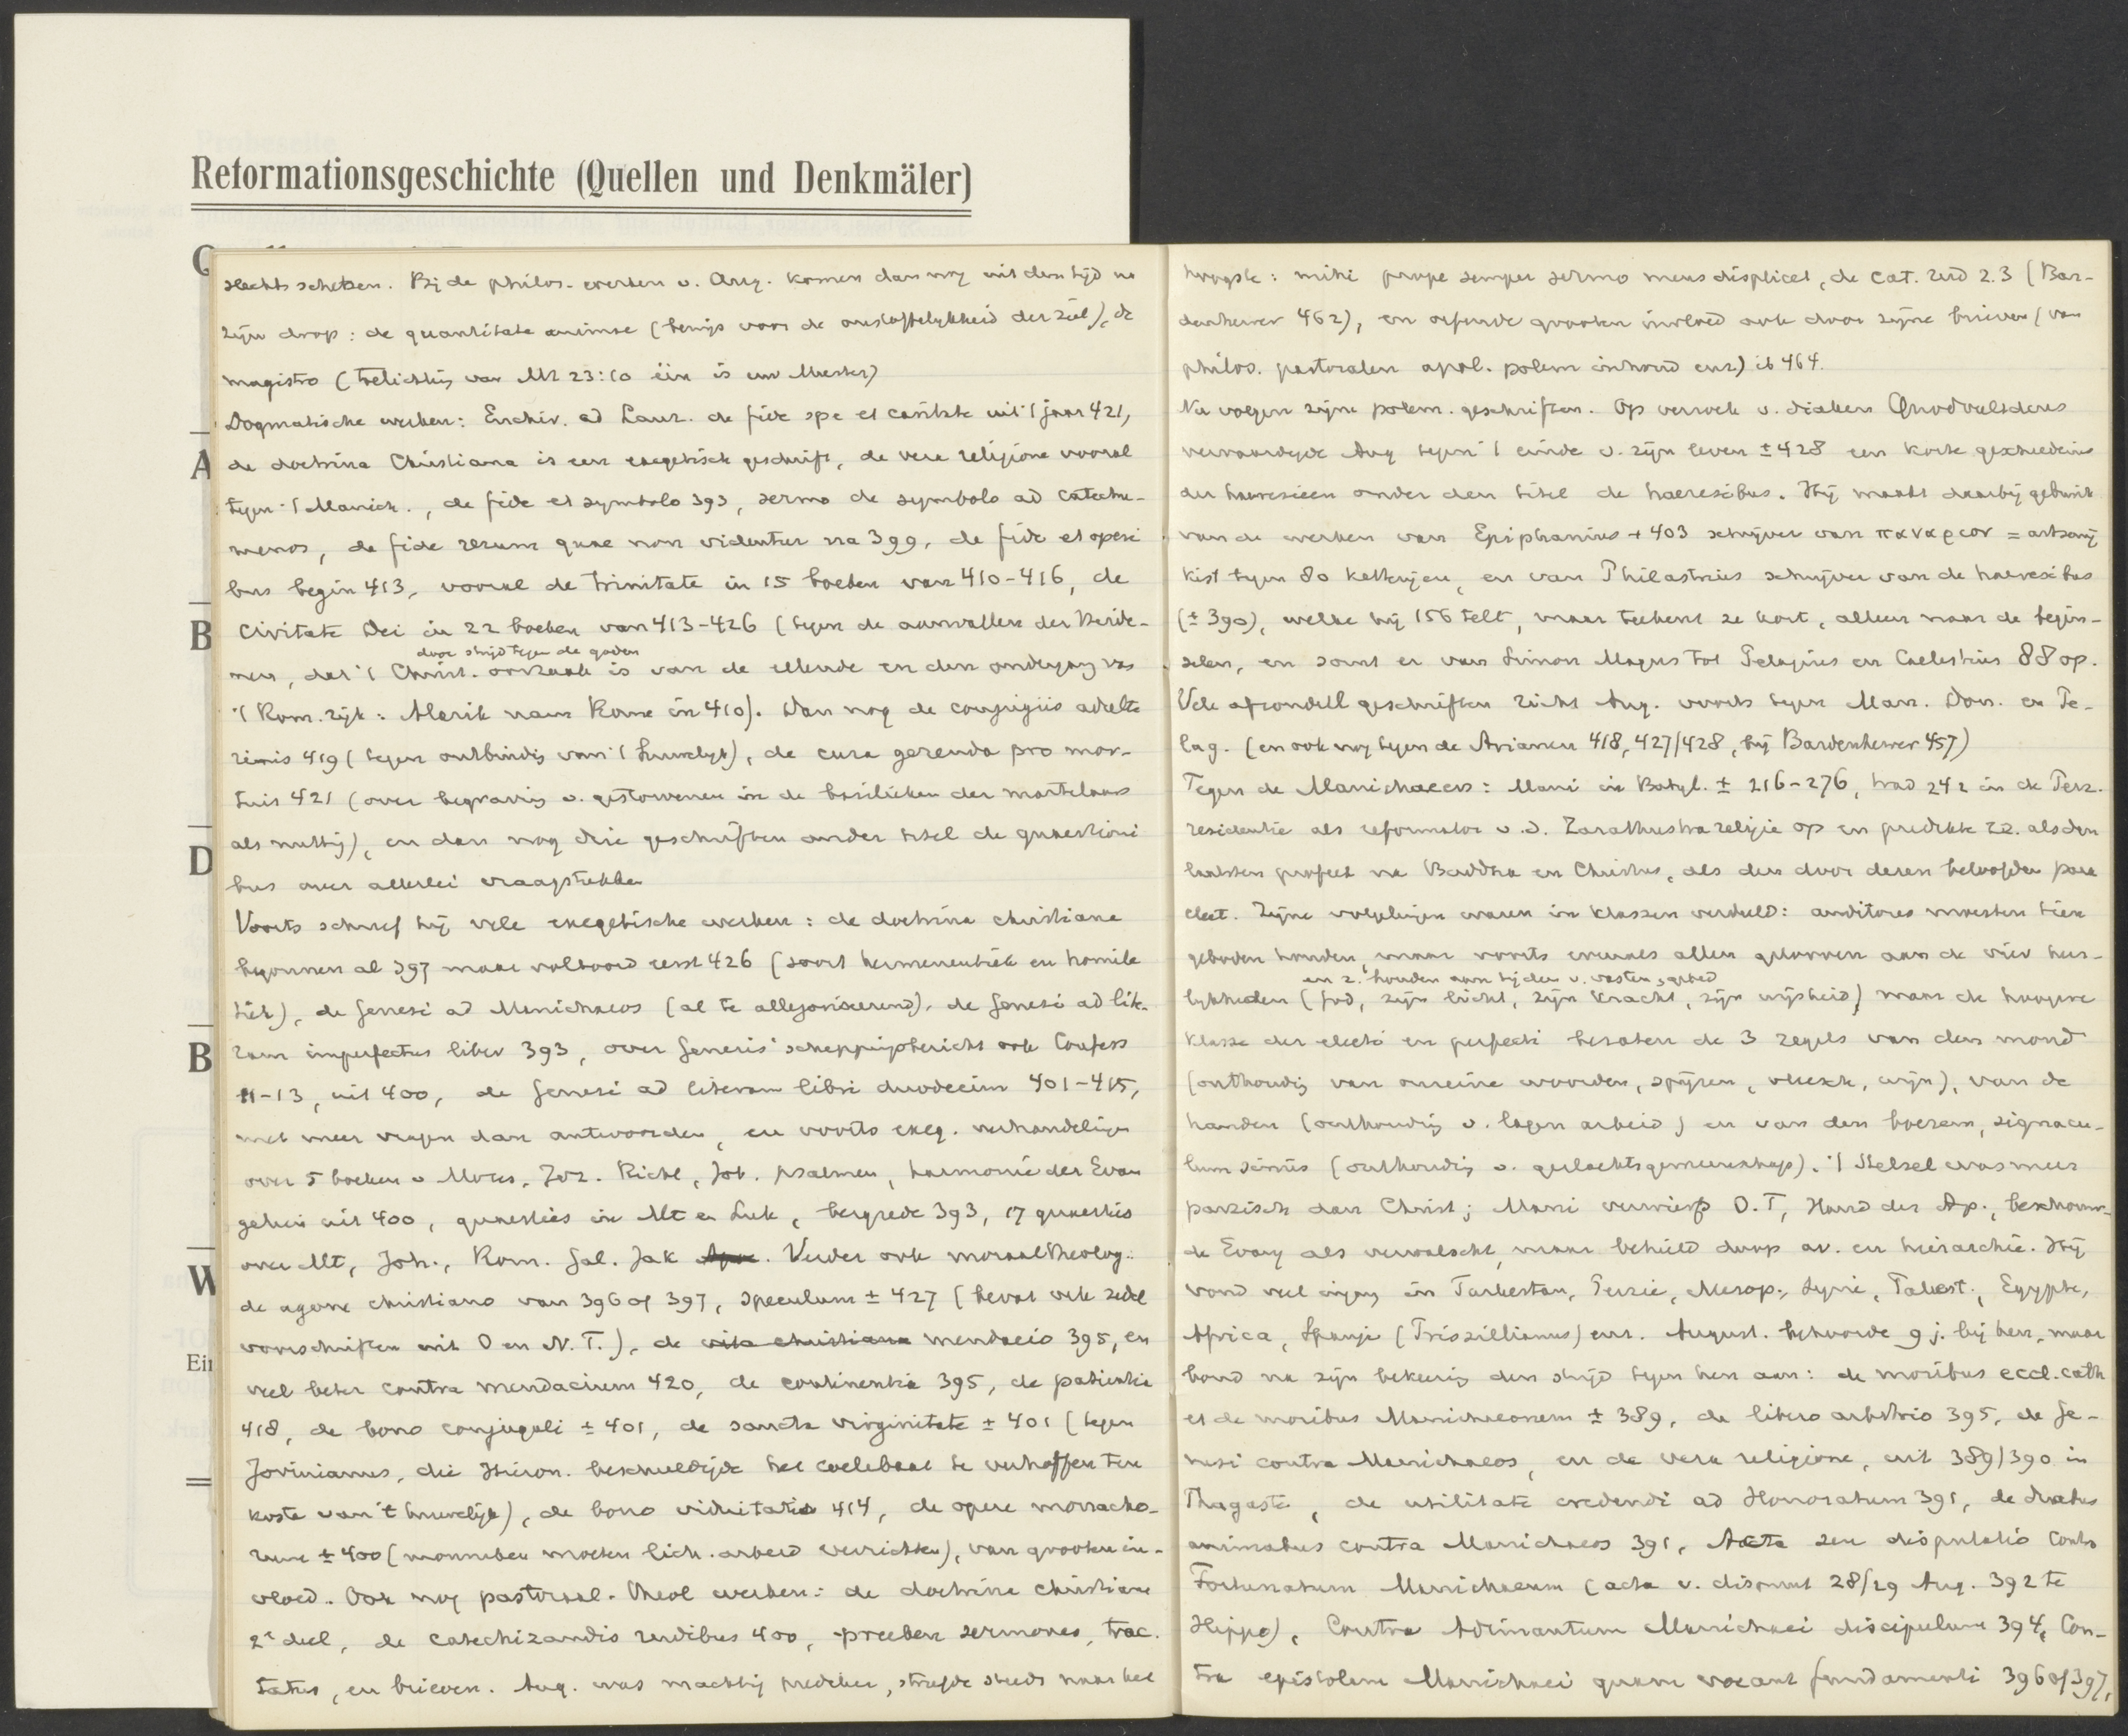 Reformationsgeschichte (Quellen und Denkmäler)
A
B
D
B
W
Ein
slechts schetsen. Bij de philos. werken v. Aug. komen dan nog uit den tijd na
zijn doop: de quantitate animae (bewijs voor de onstoffelykheid der ziel), de
magistro (toelichtig van Mt 23:10 één is uw Meester)
Dogmatische werken: Enchir. ad Laur. de fide spe et caritate uit 't jaar 421,
de doctrina Christiana is een exegetisch geschrift, de vera religione vooral
tegen 't Manich., de fide et symbolo 393, sermo de symbolo ad catechu-
menos, de fide rerum quae non videntur na 399, de fide et operi
bus begin 413, vooral de trinitate in 15 boeken van 410-416, de
Civitate Dei in 22 boeken van 413-426 (tegen de aanvallen der Heide-
door strijd tegen de goden
nen, dat 't Christ. oorzaak is van de ellende en den ondergang van
't Rom. rijk: Alarik naar Rome in 410). Dan nog de conjugiis adulte
rinis 419 (tegen ontbindig van 't huwelyk), de cura gerenda pro mor-
tuis 421 (over begravig v. gestorvenen in de basilieken der martelaars
als nuttig), en dan nog drie geschriften onder titel de quaestioni
bus over allerlei vraagstukken
Voorts schreef hij vele exegetische werken: de doctrina christiana
begonnen al 397 maar voltooid eerst 426 (soort hermeneutiek en homile
tiek), de Genesi ad Manichaeos (al te allegoriseerend), de Genesi ad litt-
ram imperfectus liber 393, over Genesis' scheppingsbericht ook Confess
11-13, uit 400, de Genesi ad literam libri duodecim 401-415,
met meer vragen dan antwoorden, en voorts exeg. verhandelingen
over 5 boeken v Mozes, Joz. Richt, Job. psalmen, harmonie der Evan
geliën uit 400, quaesties in Mt en Luk, bergrede 393, 17 quaesties
over Mt, Joh., Rom. Gal. Jak Apoc. Verder ook moraaltheolog.:
de agone christiano van 396 of 397, speculum ± 427 (bevat vele zedel
voorschriften uit O en N. T.), de vita christiana mendacio 395, en
veel beter contra mendacium 420, de continentia 395, de patientia
418, de bono conjugali ± 401, de sancta virginitate ± 401 (tegen
Jovinianus, die Hieron. beschuldigde het coelibaat te verheffen ten
koste van 't huwelijk), de bono viduitatis 414, de opere monacho-
rum ± 400 (monniken moeten lich. arbeid verrichten), van grooten in-
vloed. Ook nog pastoraal-theol werken: de doctrina christiana
2e deel, de catechizandis rudibus 400, preeken sermones, trac.
tatus, en brieven. Aug. was machtig prediker, streefde steeds naar het
hoogste: mihi prope semper sermo meus displicet, de Cat. rud 2.3 (Bar-
denhewer 462), en oefende grooten invloed ook door zijne brieven (van
philos. pastoralen apol. polem inhoud enz) ib 464.
Nu volgen zijne polem. geschriften. Op verzoek v. diaken Quodvultdeus
vervaardigde Aug tegen 't einde v. zijn leven ± 428 een korte geschiedenis
der haeresieen onder den titel de haeresibus. Hij maakt daarbij gebruik
van de werken van Epiphanius + 403 schrijver van παναριον = artsenij
kist tegen 80 ketterijen, en van Philastrius schrijver van de haeresibus
(± 390), welke hij 156 telt, maar teekent ze kort, alleen naar de begin-
selen, en somt er van Simon Magus tot Pelagius en Caelestius 88 op.
Vele afzonderl geschriften richt Aug. voorts tegen Man. Don. en Pe-
lag. (en ook nog tegen de Arianen 418, 427/428, bij Bardenhewer 457)
Tegen de Manichaeers: Mani in Babyl. ± 216-276, trad 242 in de Perz.
residentie als reformator v.d. Zarathustra religie op en predikte zz. als den
laatsten profeet na Buddha en Christus, als den door dezen beloofden para
cleet. Zijne volgelingen waren in klassen verdeeld: auditores moesten tien
geboden houden, maar voorts evenals allen gelooven aan de vier heer-
en z. houden aan tijden v. vasten, gebed
lijkheden (God, zijn licht, zijn kracht, zijn wijsheid), maar de hoogere
klasse der electi en perfecti bezaten de 3 zegels van den mond
(onthoudig van onreine woorden, spijzen, vleesch, wijn), van de
handen (onthoudig v. lagen arbeid) en van den boezem, signacu-
lum sinus (onthoudig v. geslachtsgemeenschap). 't Stelsel was meer
parzisch dan Christ; Mani verwierp O.T, Hand der Ap., beschouw-
de Evang als vervalscht, maar behield doop av. en hierarchie. Hij
vond veel ingang in Turkestan, Perzie, Mesop., Syrie, Palest., Egypte,
Africa, Spanje (Priszillianus) enz. August. behoorde 9 j. bij hen, maar
bond na zijn bekeerig den strijd tegen hen aan: de moribus eccl. cath
et de moribus Manichaeorum ± 389, de libero arbitrio 395, de Ge-
nesi contra Manichaeos, en de vera religione, uit 389/390 in
Thagaste, de utilitate credendi ad Honoratum 391, de duabus
animabus contra Manichaeos 391, Acta seu disputatio contra
Fortunatum Manichaeum (acta v. disput 28/29 Aug. 392 te
Hippo), Contra Adimantum Manichaei discipulum 394, Con-
tra epistolam Manichaei quam vocant fundamenti 396 of 397,